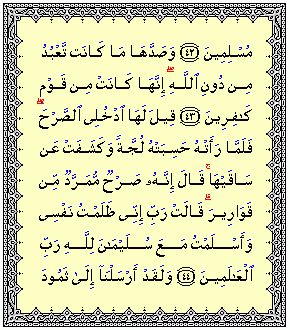 مُسْلِمِينَ ﴿٤٢﴾ وَصَدَّهَا مَا كَانَت تَّعْبُدُ
مِن دُونِ ٱللَّهِ ۖ إِنَّهَا كَانَتْ مِن قَوْمٍ
كَـٰفِرِينَ ﴿٤٣﴾ قِيلَ لَهَا ٱدْخُلِى ٱلصَّرْحَ ۖ
فَلَمَّا رَأَتْهُ حَسِبَتْهُ لُجَّةً وَكَشَفَتْ عَن
سَاقَيْهَا ۚ قَالَ إِنَّهُۥ صَرْحٌ مُّمَرَّدٌ مِّن
قَوَارِيرَ ۗ قَالَتْ رَبِّ إِنِّى ظَلَمْتُ نَفْسِى
وَأَسْلَمْتُ مَعَ سُلَيْمَـٰنَ لِلَّهِ رَبِّ
ٱلْعَـٰلَمِينَ ﴿٤٤﴾ وَلَقَدْ أَرْسَلْنَآ إِلَىٰ ثَمُودَ